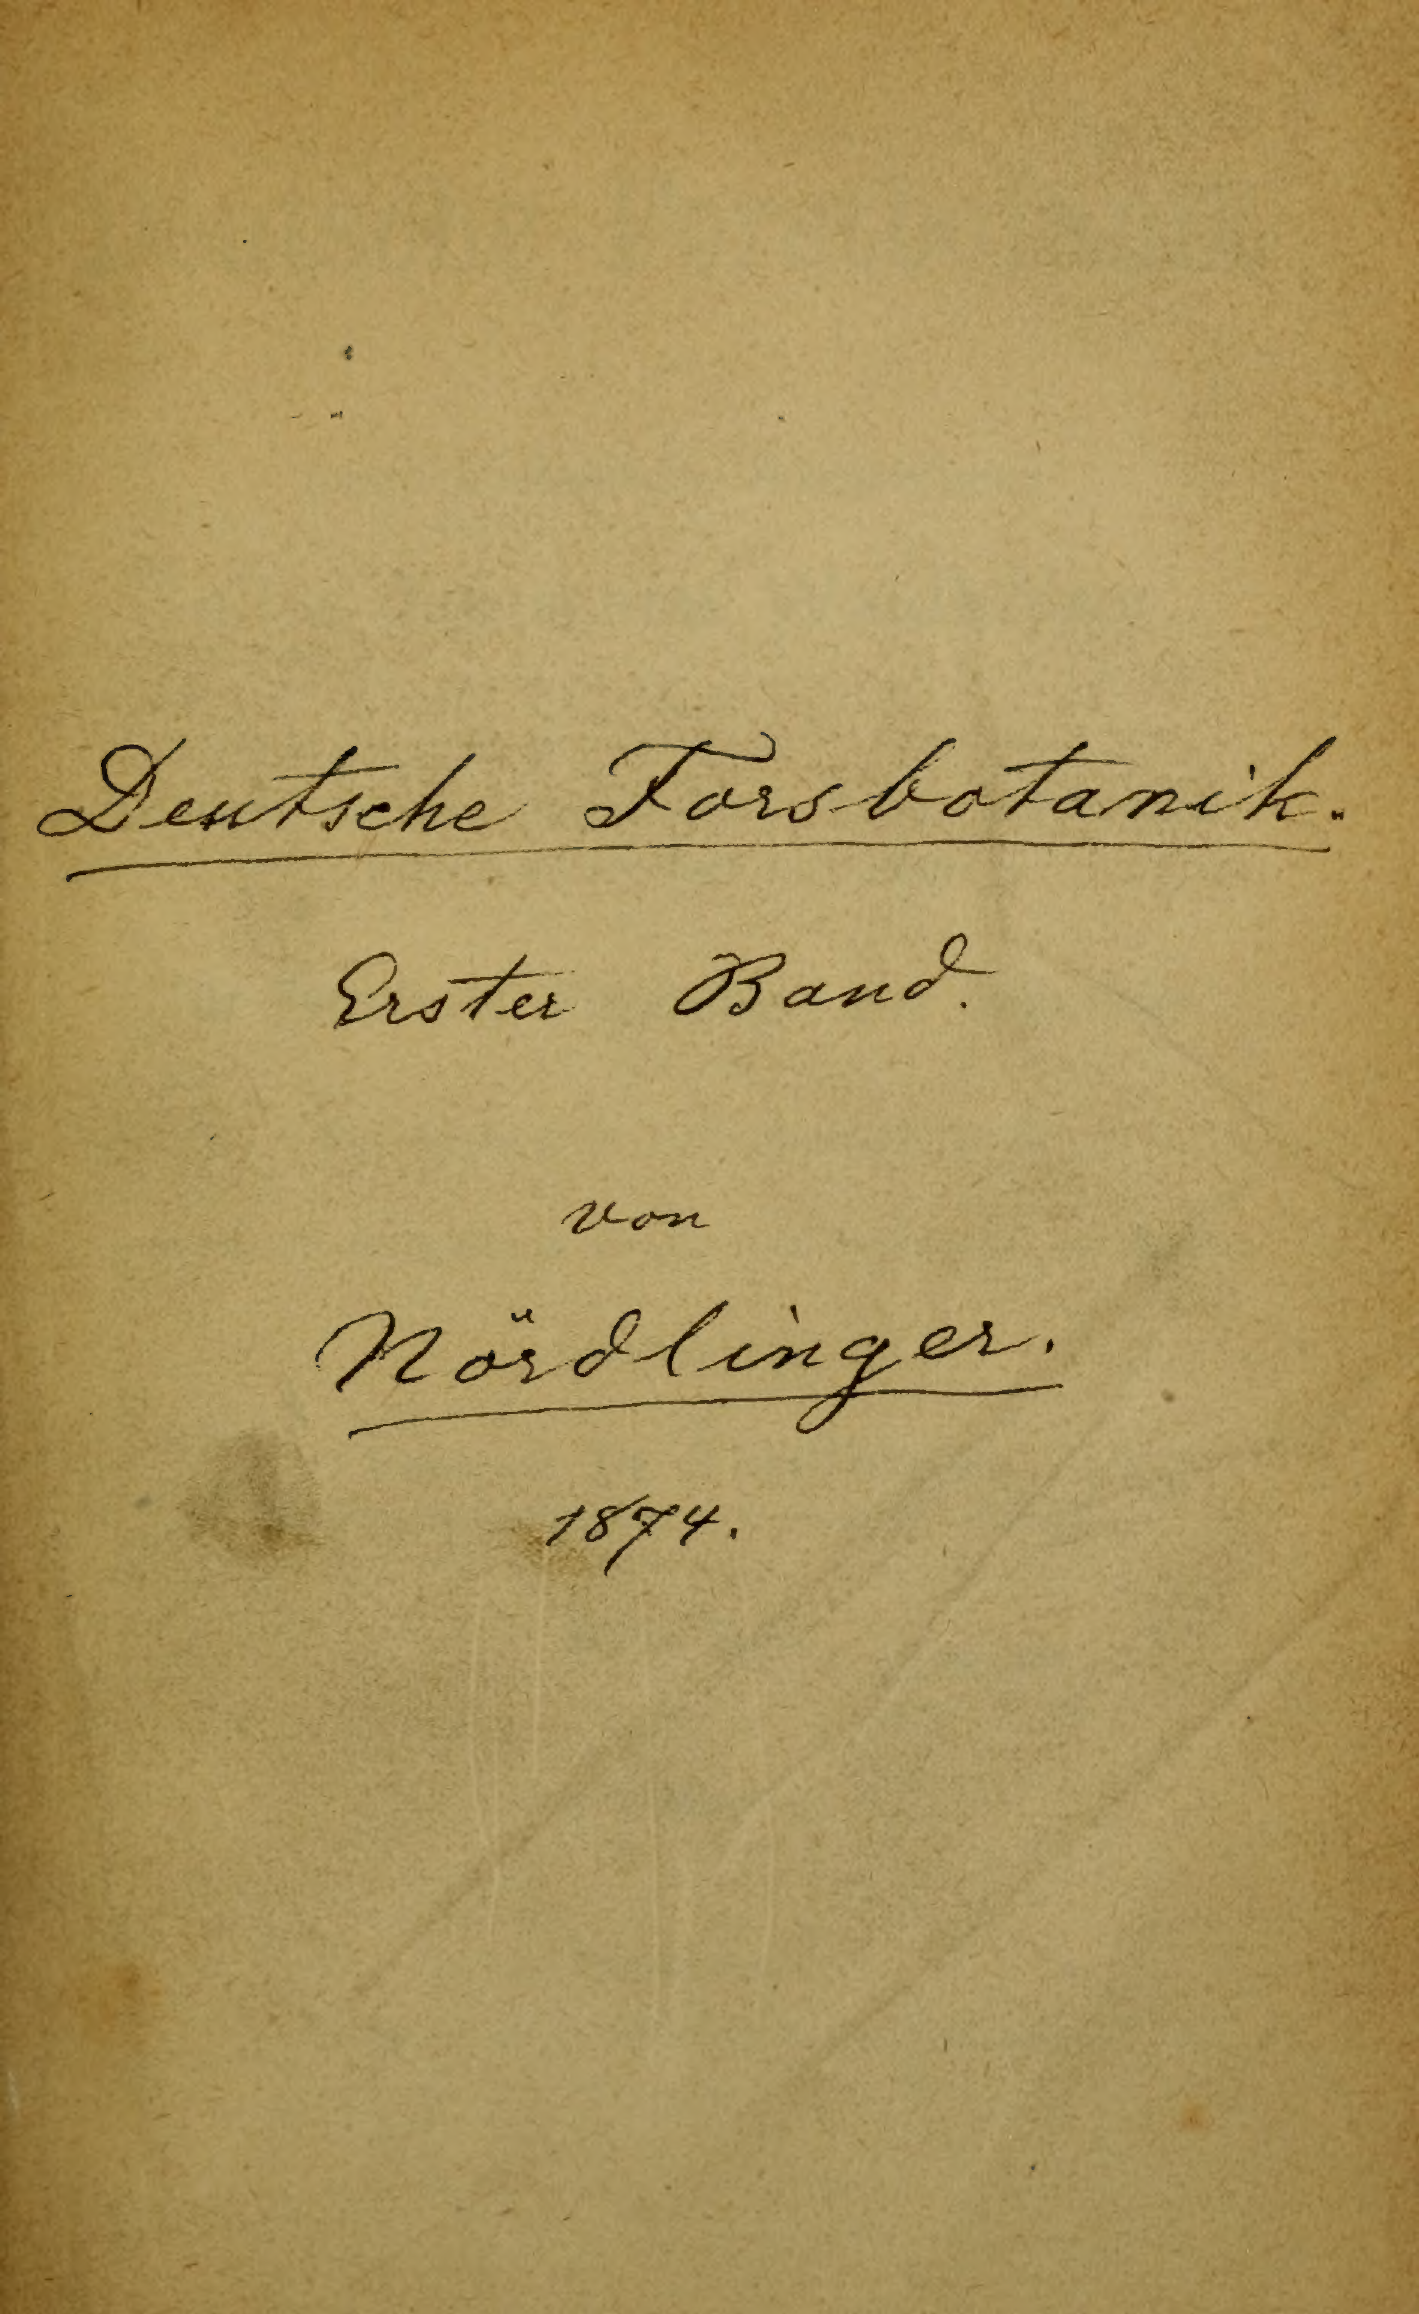 Deutsche Forsbotanik.
Erster Band.
von
Nördlinger.
1874.